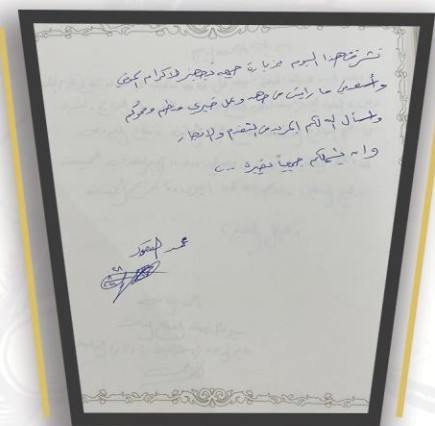 تشرفت هذا اليوم بزيارة جمعية تجهيز لإكرام الموتى
وأسعدني ما رأيت من جهد وعمل خيري منظم ومحوكم
وأسأل الله لكم المزيد من التقدم والازدهار
وان يشملكم جميعاً بخيره ...
محمد